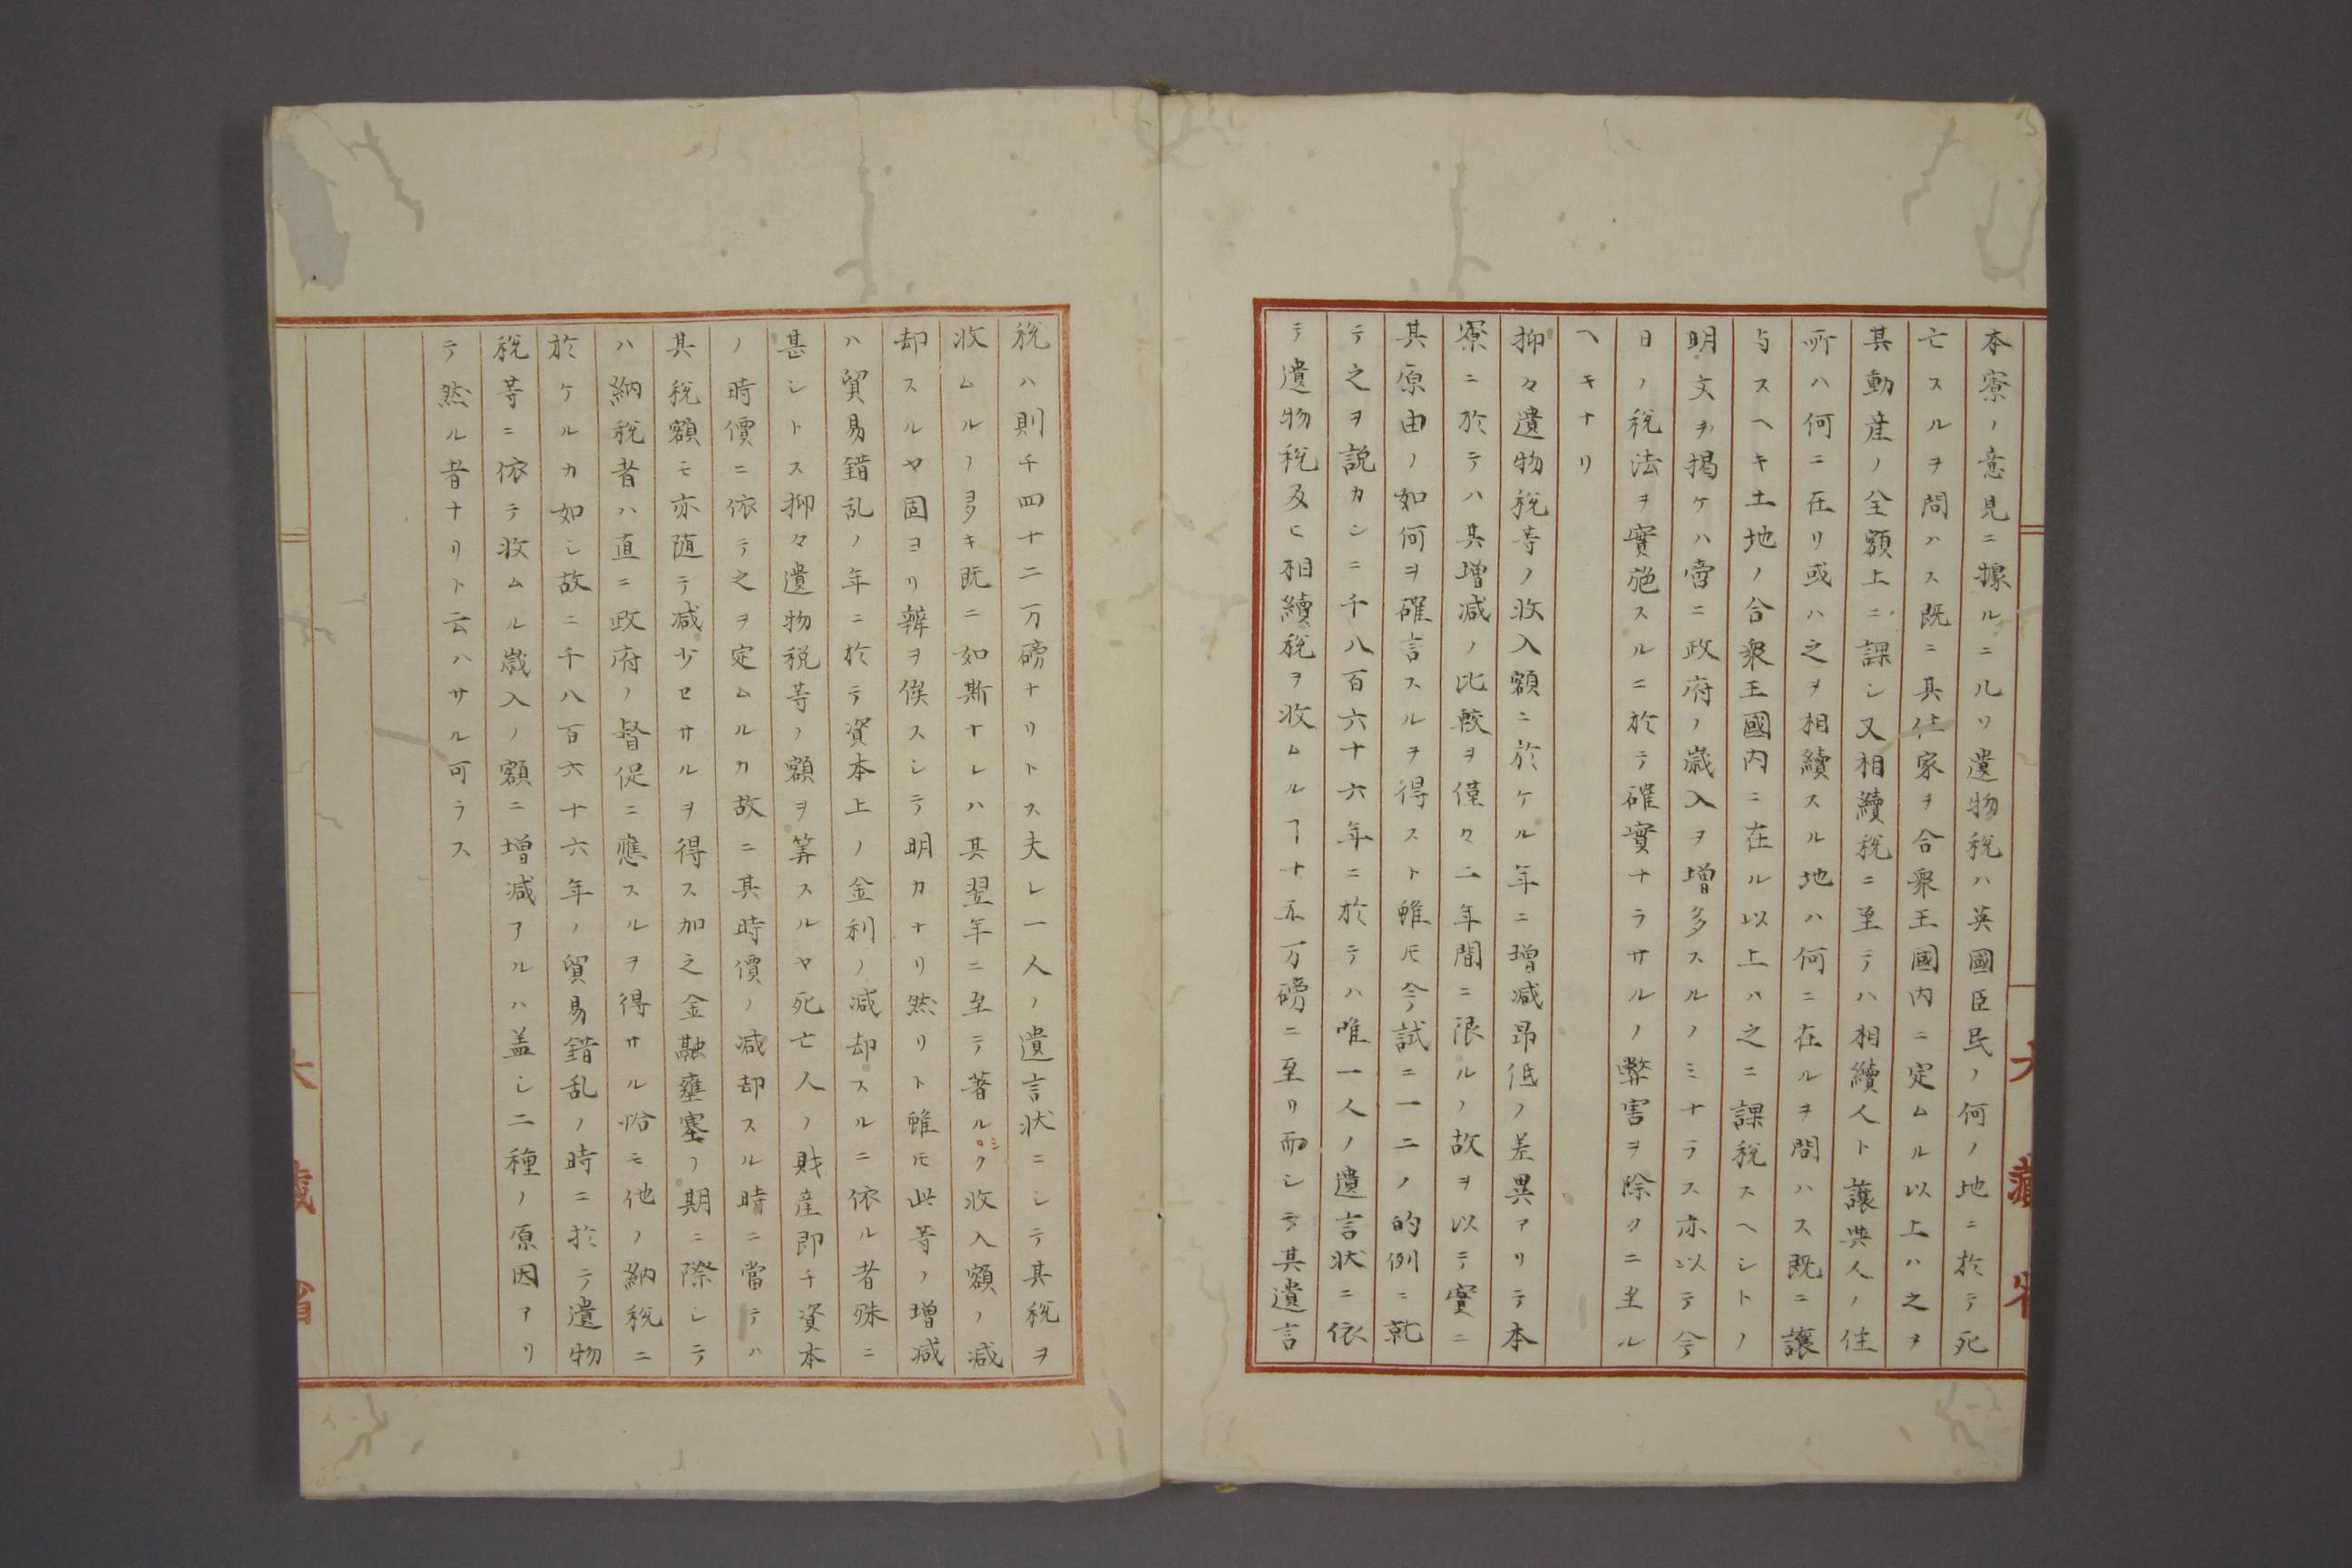 本寮ノ意見ニ據ルニ凡ソ遺物税ハ英國臣民ノ何ノ地ニ於テ死
亡スルヲ問ハス既ニ其住家ヲ合衆王國内ニ定ムル以上ハ之ヲ
其動産ノ全額上ニ課シ又相續税ニ至テハ相續人ト讓與人ノ住
所ハ何ニ在リ或ハ之ヲ相續スル地ハ何ニ在ルヲ問ハス既ニ讓
与スヘキ土地ノ合衆王國内ニ在ル以上ハ之ニ課税スヘシトノ
明文ヲ掲ケハ啻ニ政府ノ歳入ヲ增多スルノミナラス亦以テ今
日ノ税法ヲ實施スルニ於テ確實ナラサルノ弊害ヲ除クニ至ル
ヘキナリ
抑々遺物税等ノ收入額ニ於ケル年ニ增減昂低ノ差異アリテ本
寮ニ於テハ其增減ノ比較ヲ僅々二年間ニ限ルノ故ヲ以テ實ニ
其原由ノ如何ヲ確言スルヲ得スト雖𪜈今試ニ一二ノ的例ニ就
テ之ヲ説カンニ千八百六十六年ニ於テハ唯一人ノ遺言状ニ依
テ遺物税及ヒ相續税ヲ收ムルヿ十五万磅ニ至リ而シテ其遺言
税ハ則チ四十二万磅ナリトス夫レ一人ノ遺言状ニシテ其税ヲ
收ムルノ多キ既ニ如斯ナレハ其翌年ニ至テ著ルシク收入額ノ減
却スルヤ固ヨリ辨ヲ俟スシテ明カナリ然リト雖𪜈此等ノ增減
ハ貿易錯乱ノ年ニ於テ資本上ノ金利ノ減却スルニ依ル者殊ニ
甚シトス抑々遺物税等ノ額ヲ筭スルヤ死亡人ノ財産即チ資本
ノ時價ニ依テ之ヲ定ムルカ故ニ其時價ノ減却スル時ニ當テハ
其税額モ亦随テ減少セサルヲ得ス加之金融壅塞ノ期ニ際シテ
ハ納税者ハ直ニ政府ノ督促ニ應スルヲ得サル恰モ他ノ納税ニ
於ケルカ如シ故ニ千八百六十六年ノ貿易錯乱ノ時ニ於テ遺物
税等ニ依テ收ムル歳入ノ額ニ增減アルハ盖シ二種ノ原因アリ
テ然ル者ナリト云ハサル可ラス
大藏省
大藏省